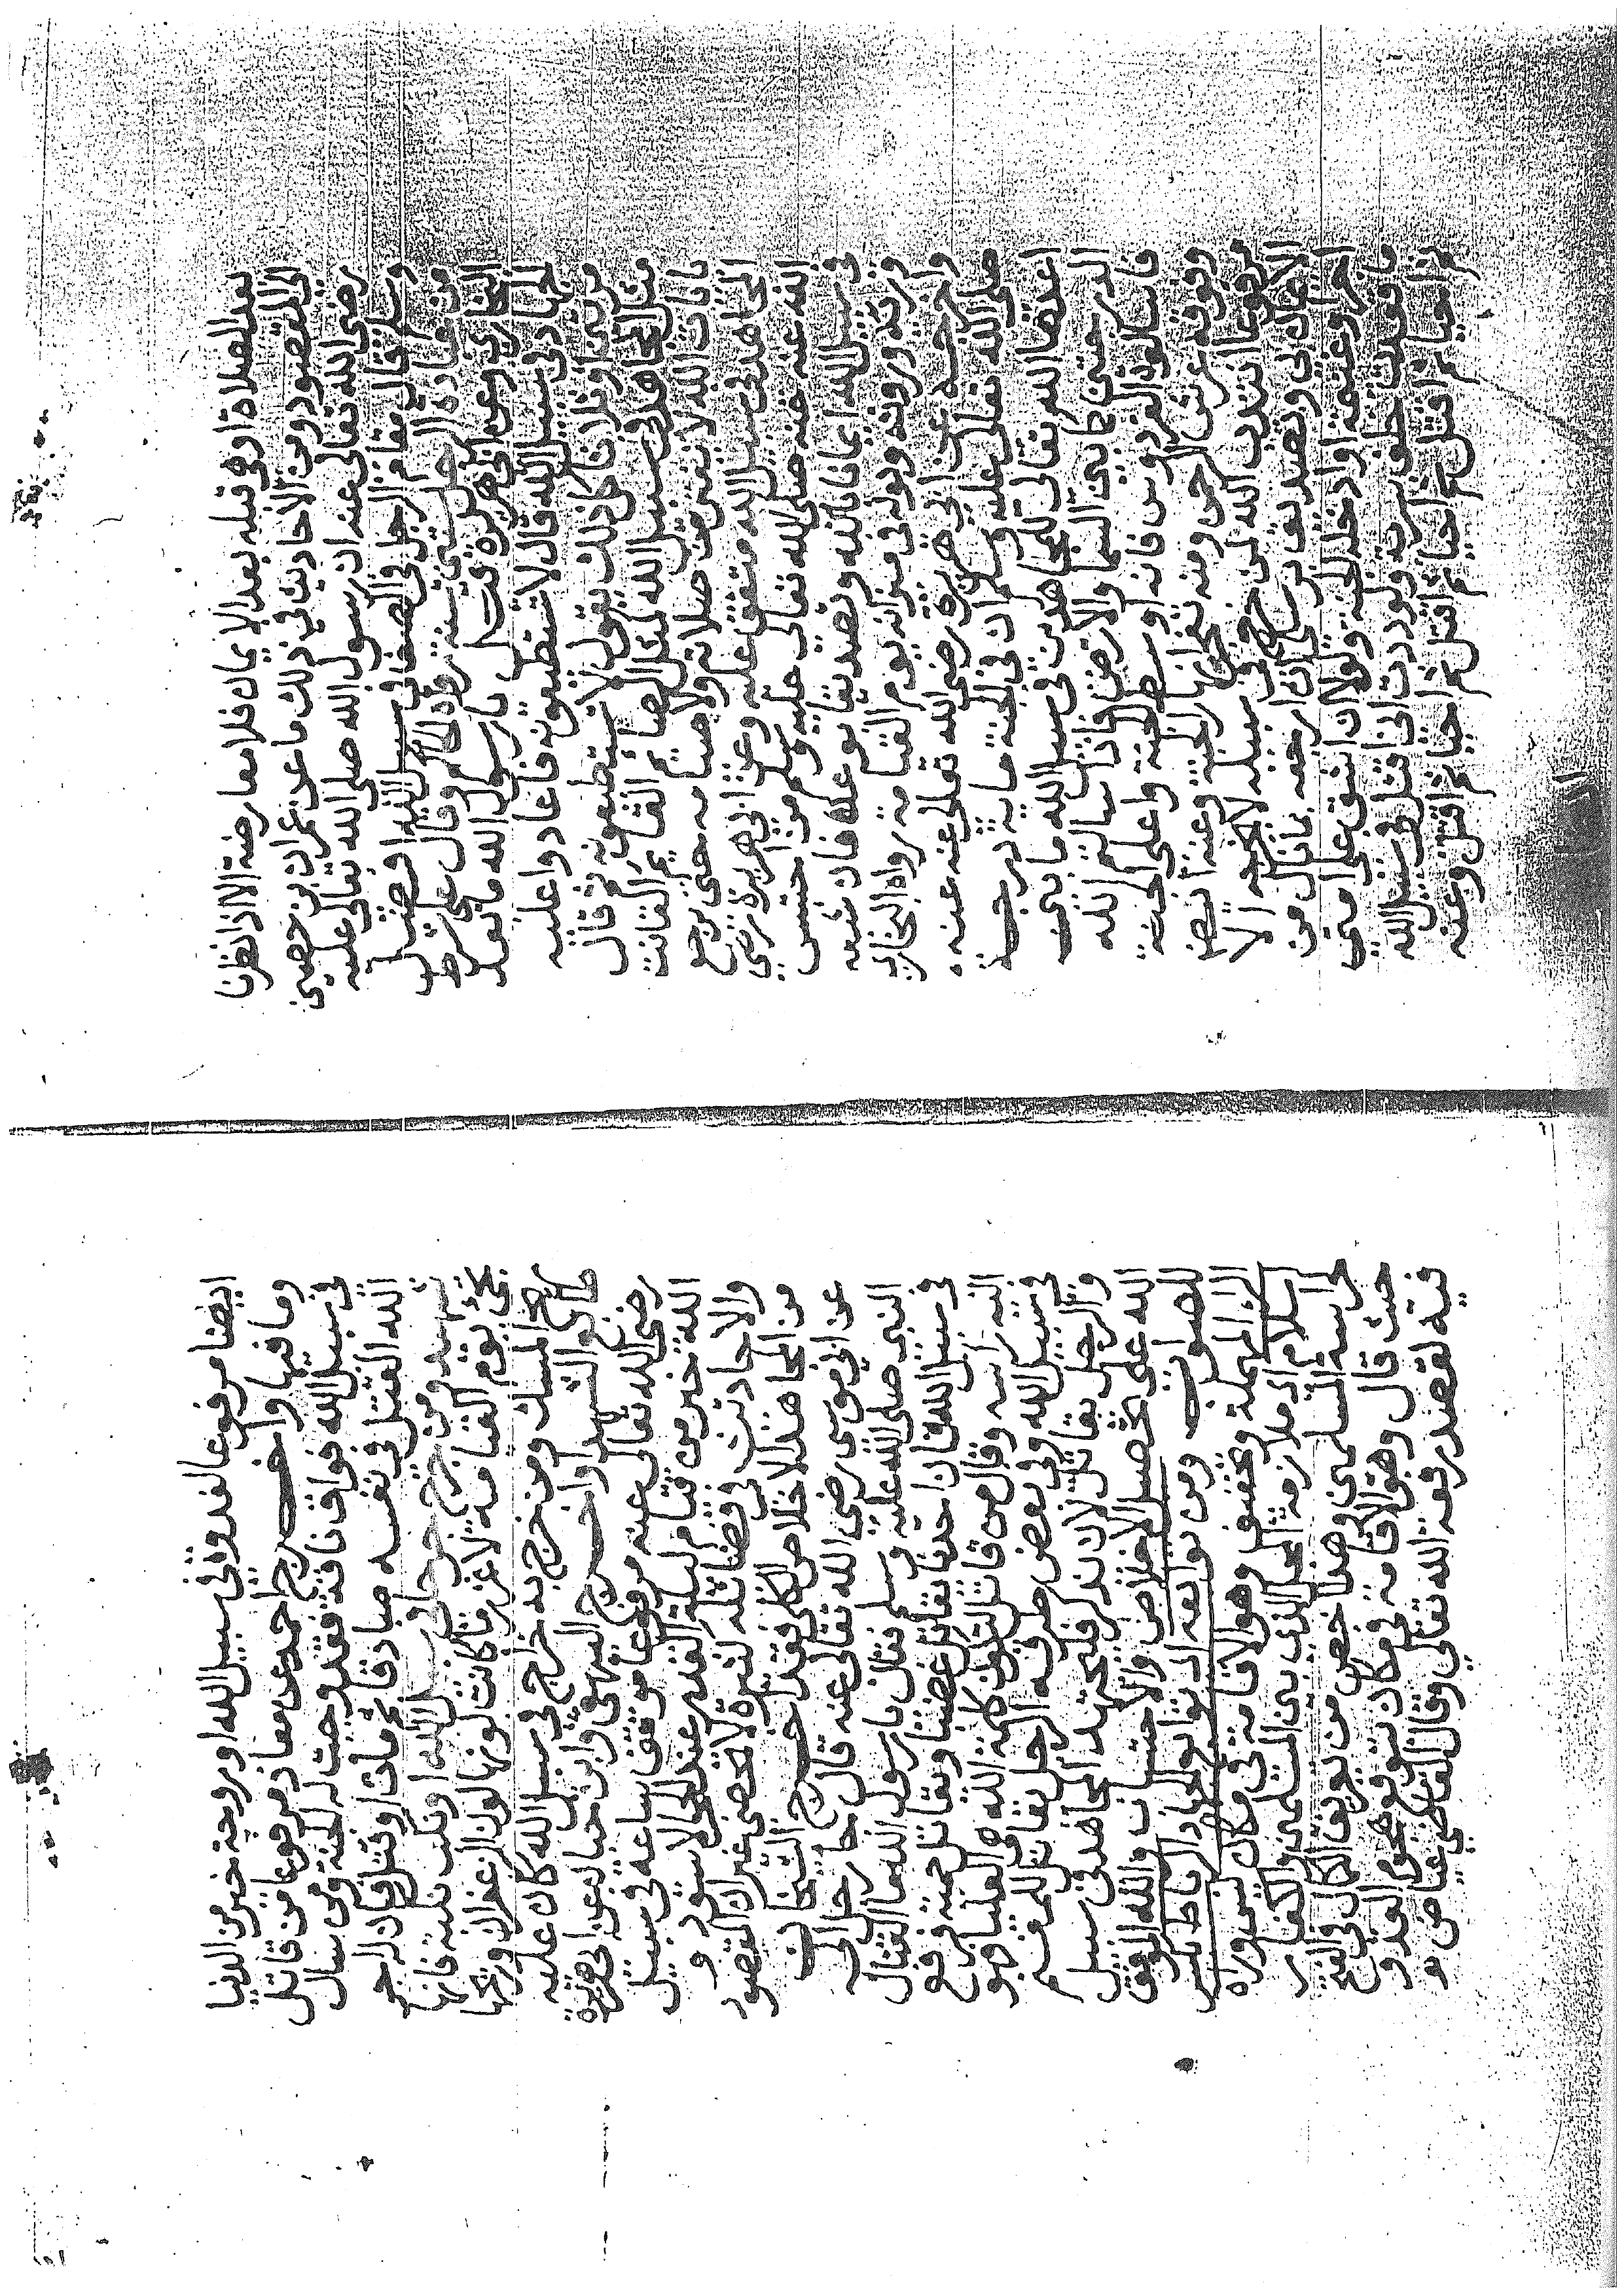 بعد الصلاة اوهي قبله بعد الايمان فلا معارضة الا اذا نظرنا
الى المقصود ومن الاحاديث في ذلك ما عن عمران بن حصين
رضي الله تعالى عنه ان رسول الله صلى الله تعالى عليه
وسلم قال مقام الرجل في الصف في سبيل الله افضل
من عبادة الرجل ستين سنة رواه الحاكم وقال على شرط
البخاري وعن ابي هريرة قيل يا رسول الله ما يعدل
الجهاد في سبيل الله قال لا تستطيعونه فاعادوا عليه
مرتين او ثلاثا كل ذلك يقول لا تستطيعونه ثم قال
مثل المجاهد في سبيل الله كمثل الصائم القائم القانت
بايات الله لا يفتر من صلاته ولا صيامه حتى يرجع
المجاهد في سبيل الله متفق عليه وعن ابي هريرة رضي
الله عنه عنه صلى الله تعالى عليه وسلم من احتبس
في سبيل الله ايمانا بالله وتصديقا بوعده فان شبعه
وريه وروثه وبوله في ميزانه يوم القيامة رواه البخاري
واخرج عن ابي هريرة رضي الله تعالى عنه عنه
صلى الله تعالى عليه وسلم ان في الجنة مائة درجة
اعدها الله تعالى للمجاهدين في سبيل الله ما بين
الدرجتين كما بين السما والارض فاذا سالتم الله
فاسالوه الفردوس فانه اوسط الجنة واعلى الجنة
وفوقه عرش الرحمن ومنه تفجر انهار الجنة وعنه ايضا
مرفوعا انتدب الله لمن خرج في سبيله لا يخرجه الا
الايمان بي وتصديق برسلي ان ارجعه بما نال من
اجر او غنيمة او ادخله الجنة ولولا ان اشق على امتي
ما قعدت خلف سرية ولوددت اني اقتل في سبيل الله
ثم احيا ثم اقتل ثم احيا ثم اقتل ثم احيا ثم اقتل وعنه
ايضا مرفوعا لغدوة في سبيل الله او روحة خير من الدنيا
وما فيها واخرج احمد عن معاذ مرفوعا من قاتل
في سبيل الله فواق ناقة فقد وجبت له الجنة ومن سال
الله القتل في نفسه صادقا ثم مات او قتل فان له اجر
شهيد ومن جرح جرحا في سبيل الله او نكب نكبة فانها
تجيء يوم القيامة لاغزر ما كانت لونها لون الزعفران وريحها
ريح المسك ومن خرج به خراج في سبيل الله كان عليه
طابع الشهدا واخرج البيهقي وابن حبان عن ابي هريرة
رضي الله تعالى عنه مرفوعا موقف ساعة في سبيل
الله خير من قيام ليلة القدر عند الحجر الاسود و
والاحاديث في فضائله كثيرة لا تحصى غير ان المقصود
من المجاهد الاخلاص لكن فقد اخرج الشيخان
عن ابي موسى رضي الله تعالى عنه قال جا رجل الى
النبي صلى الله عليه وسلم فقال يا رسول الله ما القتال
في سبيل الله فان احدنا يقاتل غضبا ويقاتل حمية فرفع
اليه راسه وقال من قاتل لتكون كلمة الله هي العليا فهو
في سبيل الله وفي بعض طرقه الرجل يقاتل للمغنم
والرجل يقاتل لان يذكر فينبغي للمجاهد في سبيل
الله على تحصيل الاخلاص والاحتساب والله الموفق
للصواب ومن توابعه اي توابع الجهاد الرباط بكسر
الراء المهملة وتخفيف وهو الاقامة في مكان ليس وراه
اسلام اي ملازمة المحل الذي بين المسلمين والكفار
حراسة المسلمين وهذا اخص من تعريف الكمال في الفتح
حيث قال وهو الاقامة في مكان يتوقع هجوم العدو
فيه لقصد دفعه الله تعالى وقال القاضي عياض